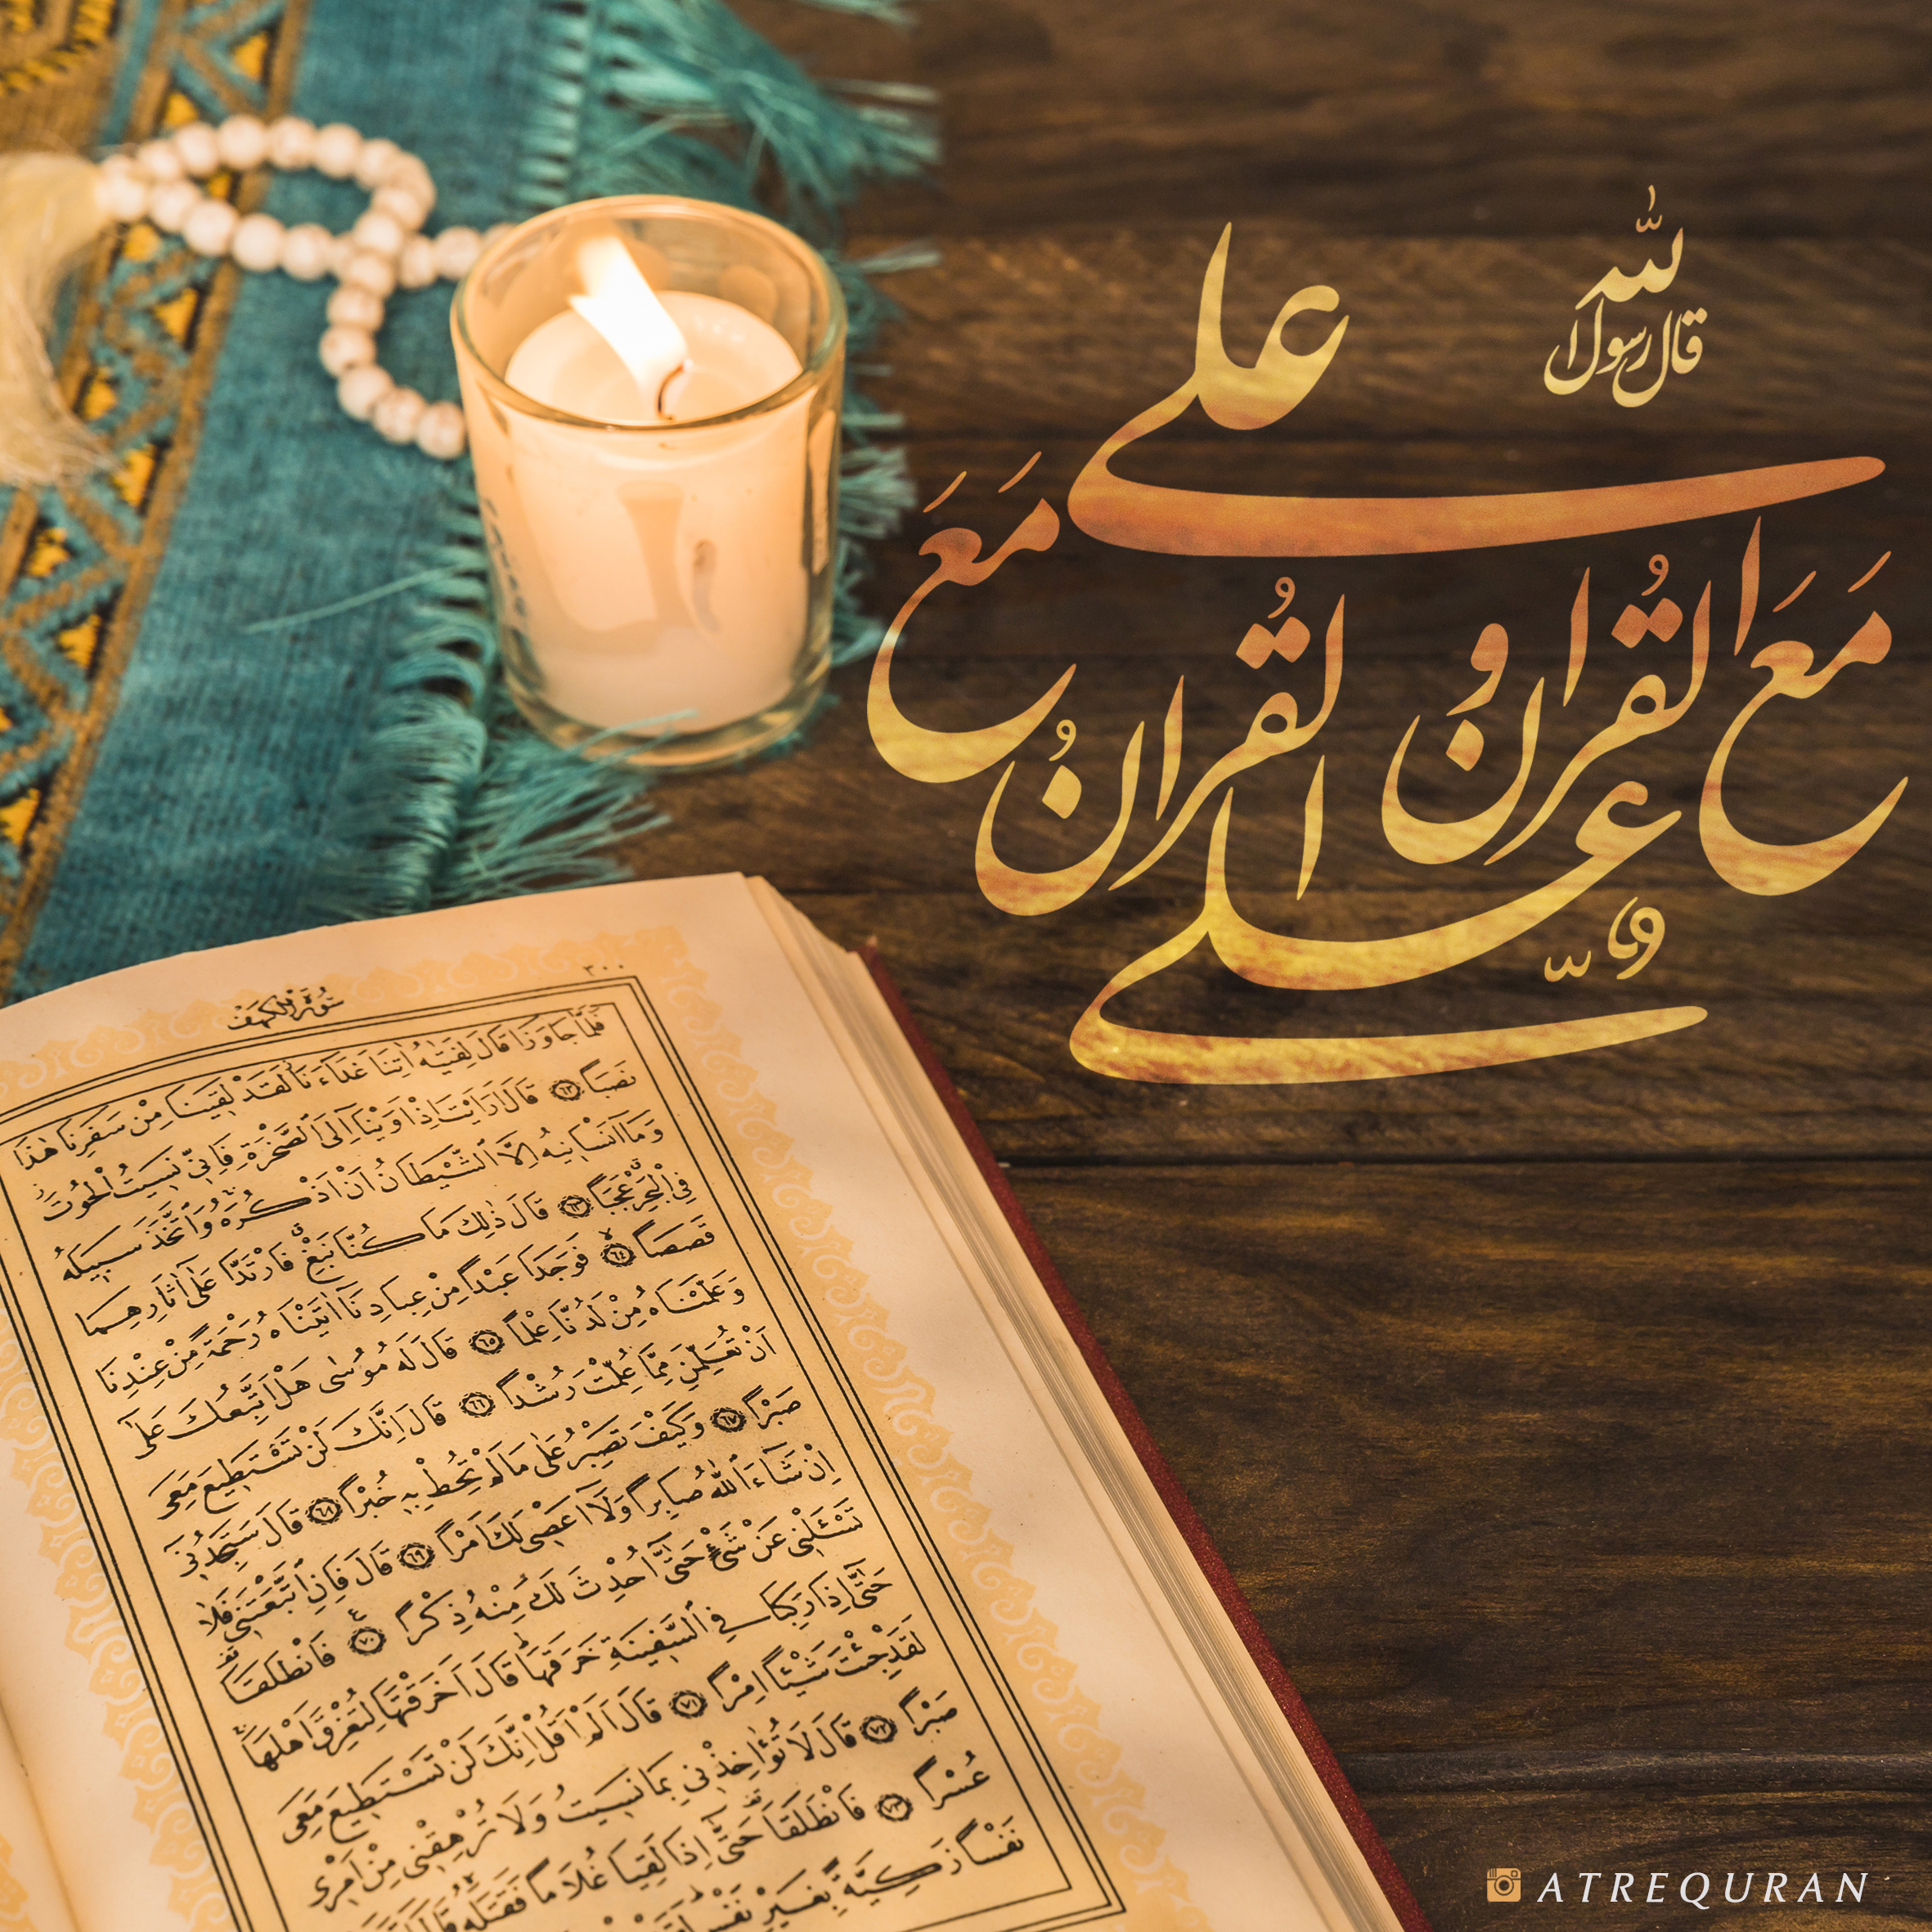 قال رسول الله
علی
مَعَ القُران و القُرانُ مَعَ
عَلیّ
٣٠٠
سُورَةُ الْكَهْفِ
فَلَمَّا جَاوَزَا قَالَ لِفَتٰيهُ اٰتِنَا غَدَاءَنَا لَقَدْ لَقِينَا مِنْ سَفَرِنَا هٰذَا
نَصَبًا ٦٢ قَالَ اَرَاَيْتَ اِذْ اَوَيْنَا اِلَى الصَّخْرَةِ فَاِنِّي نَسِيتُ الْحُوتَ
وَمَا اَنْسَانِيهُ اِلَّا الشَّيْطَانُ اَنْ اَذْكُرَهُ وَاتَّخَذَ سَبِيلَهُ
فِي الْبَحْرِ عَجَبًا ٦٣ قَالَ ذٰلِكَ مَا كُنَّا نَبْغِ فَارْتَدَّا عَلٰى اٰثَارِهِمَا
قَصَصًا ٦٤ فَوَجَدَا عَبْدًا مِنْ عِبَادِنَا اٰتَيْنَاهُ رَحْمَةً مِنْ عِنْدِنَا
وَعَلَّمْنَاهُ مِنْ لَدُنَّا عِلْمًا ٦٥ قَالَ لَهُ مُوسٰى هَلْ اَتَّبِعُكَ عَلٰى
اَنْ تُعَلِّمَنِ مِمَّا عُلِّمْتَ رُشْدًا ٦٦ قَالَ اِنَّكَ لَنْ تَسْتَطِيعَ مَعِيَ
صَبْرًا ٦٧ وَكَيْفَ تَصْبِرُ عَلٰى مَا لَمْ تُحِطْ بِهِ خُبْرًا ٦٨ قَالَ سَتَجِدُنِي
اِنْ شَاءَ اللّٰهُ صَابِرًا وَلَا اَعْصِي لَكَ اَمْرًا ٦٩ قَالَ فَاِنِ اتَّبَعْتَنِي فَلَا
تَسْئَلْنِي عَنْ شَيْءٍ حَتّٰى اُحْدِثَ لَكَ مِنْهُ ذِكْرًا ٧٠ فَانْطَلَقَا
حَتّٰى اِذَا رَكِبَا فِي السَّفِينَةِ خَرَقَهَا قَالَ اَخَرَقْتَهَا لِتُغْرِقَ اَهْلَهَا
لَقَدْ جِئْتَ شَيْئًا اِمْرًا ٧١ قَالَ اَلَمْ اَقُلْ اِنَّكَ لَنْ تَسْتَطِيعَ مَعِيَ
صَبْرًا ٧٢ قَالَ لَا تُؤَاخِذْنِي بِمَا نَسِيتُ وَلَا تُرْهِقْنِي مِنْ اَمْرِي
عُسْرًا ٧٣ فَانْطَلَقَا حَتّٰى اِذَا لَقِيَا غُلَامًا فَقَتَلَهُ قَالَ
نَفْسًا زَكِيَّةً بِغَيْرِ نَفْسٍ
ATREQURAN